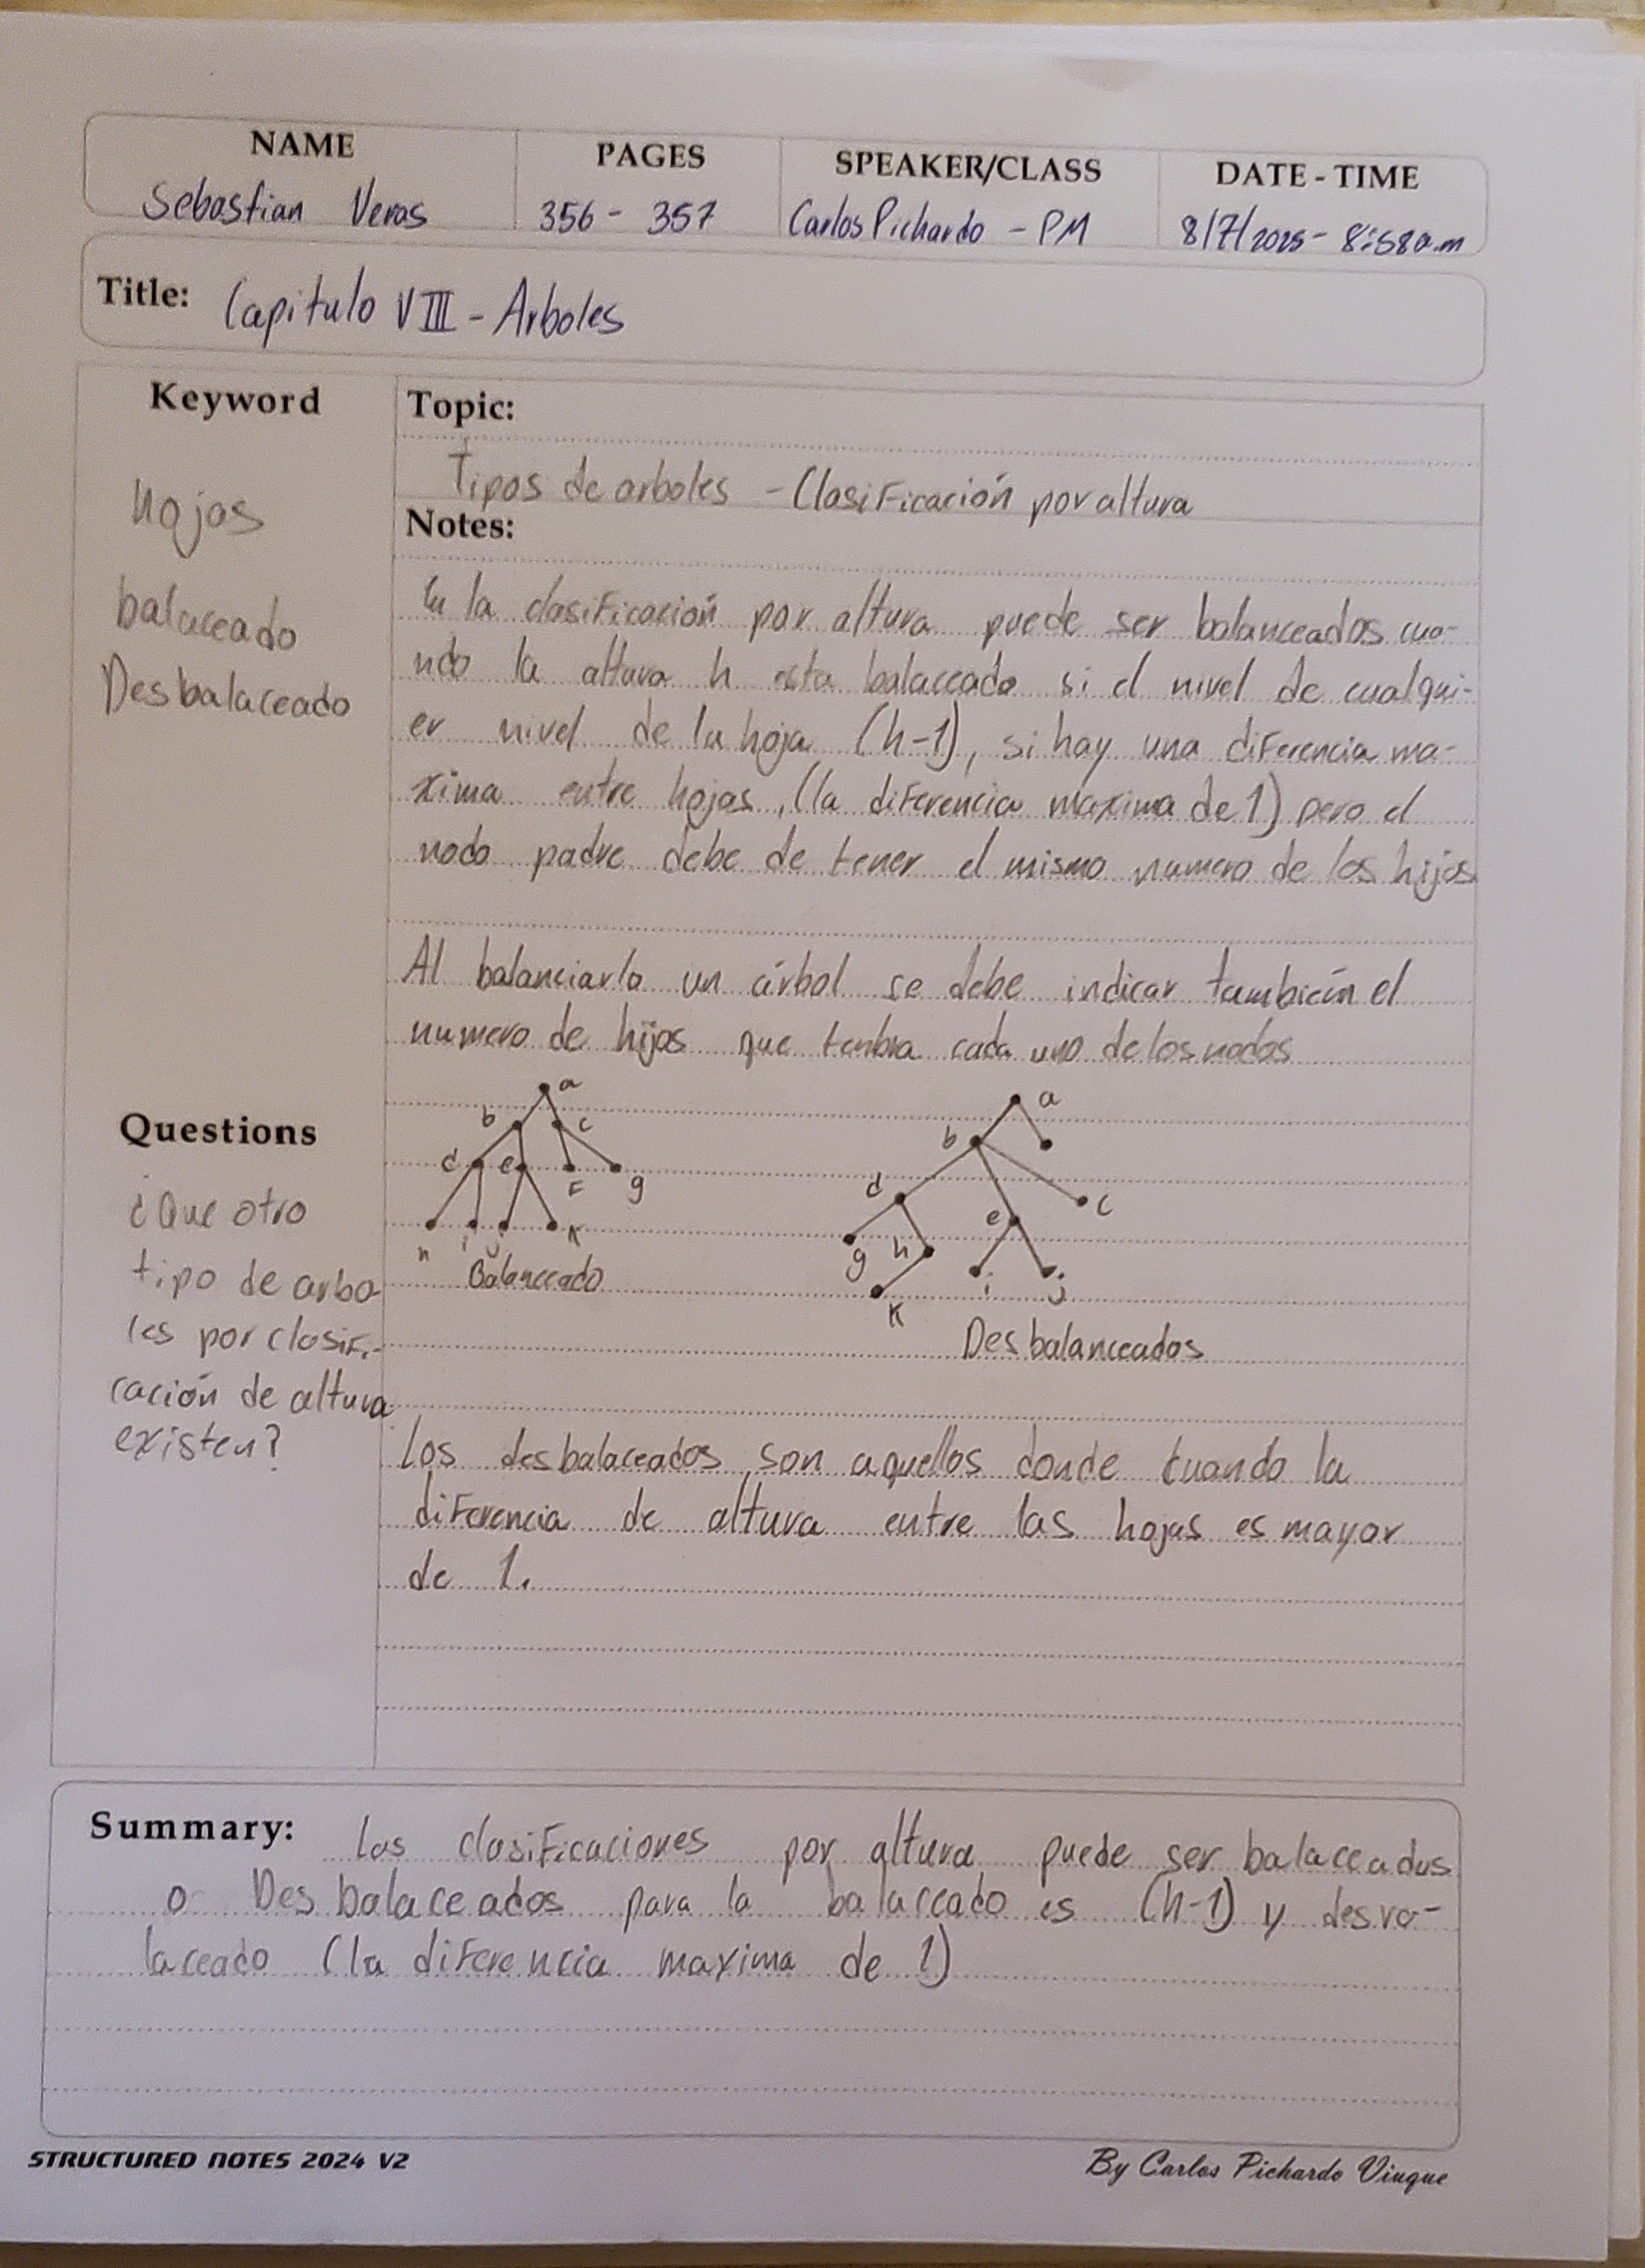 NAME
PAGES
SPEAKER/CLASS
DATE - TIME
Sebastian Veras
356 - 357
Carlos Pichardo - PM
8/7/2025 - 8:58a.m
Title: Capitulo VIII - Arboles
Keyword
hojas
balaceado
Desbalaceado
Topic:
Tipos de arboles - Clasificación por altura
Notes:
En la clasificación por altura puede ser balanceados cua-
ndo la altura h esta balaceado si el nivel de cualqui-
er nivel de la hoja (h-1), si hay una diferencia ma-
xima entre hojas, (la diferencia maxima de 1) pero el
nodo padre debe de tener el mismo numero de los hijos
Al balanciarlo un árbol se debe indicar también el
numero de hijos que tendra cada uno de los nodos
a
b c
d e f g
h i j k
Balanceado
a
b
d e c
g h i j
k
Desbalanceados
Los desbalaceados son aquellos donde cuando la
diferencia de altura entre las hojas es mayor
de 1.
Questions
¿Que otro
tipo de arbo
les por clasifi-
cación de altura
existen?
Summary: Las clasificaciones por altura puede ser balaceados
o Desbalaceados para la balaceado es (h-1) y desva-
laceado (la diferencia maxima de 1)
STRUCTURED NOTES 2024 V2
By Carlos Pichardo Viuque